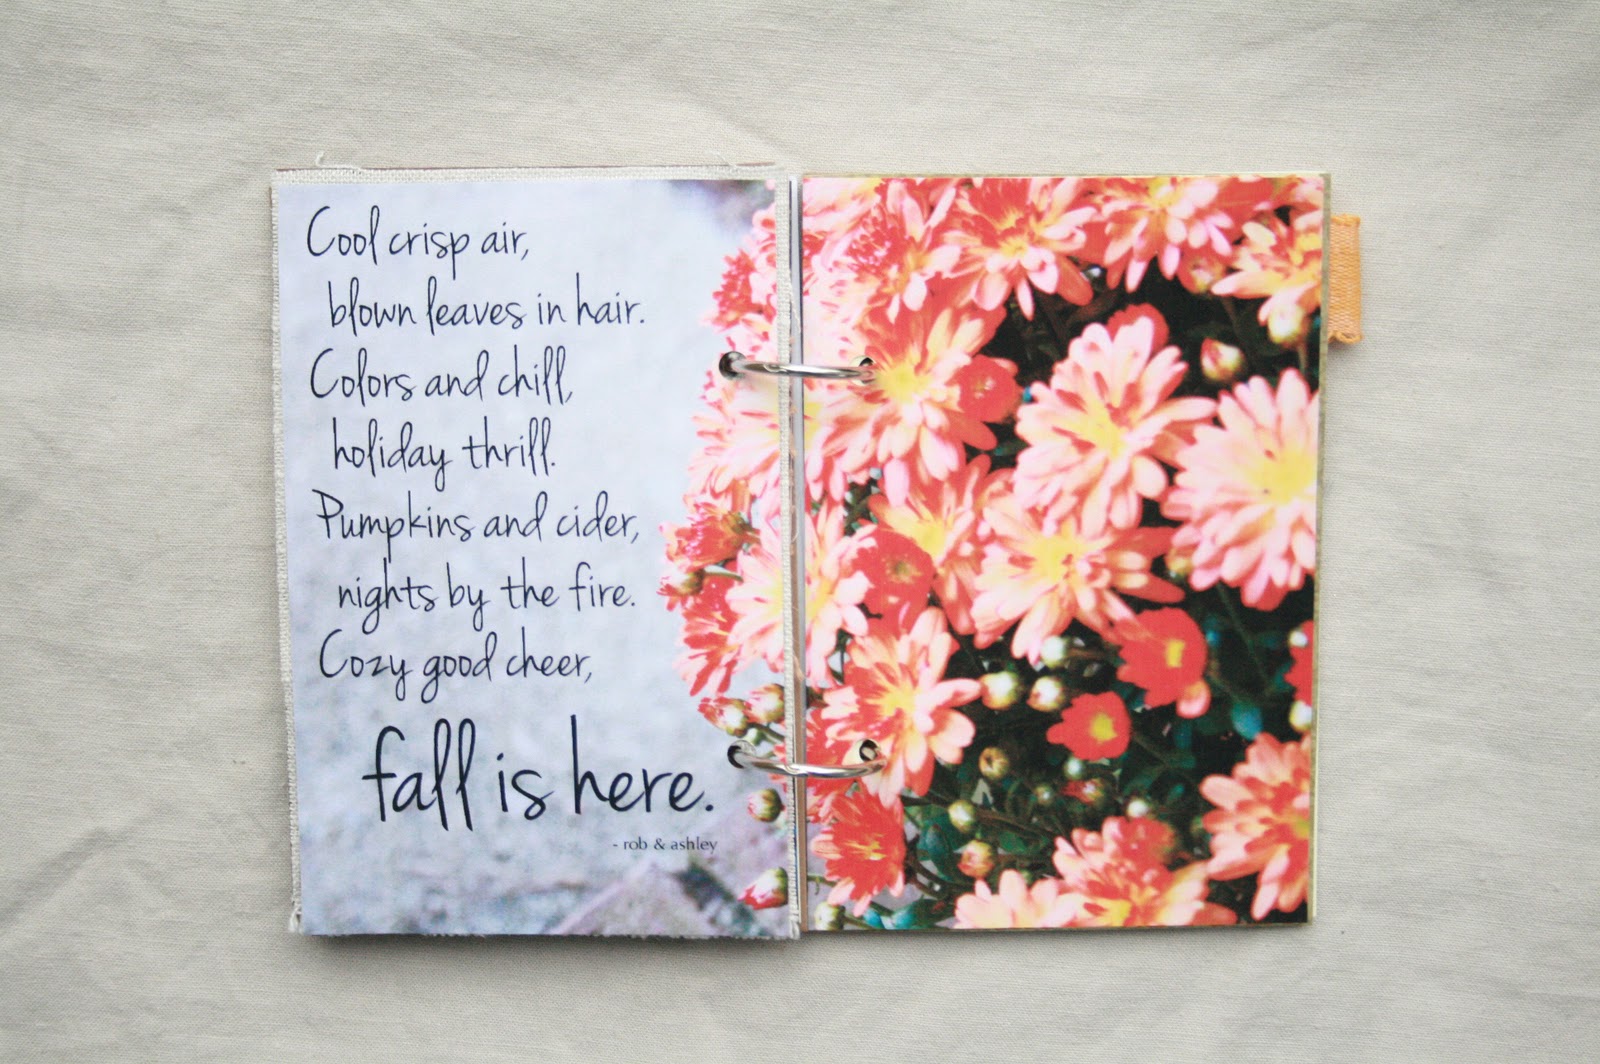 Cool crisp air,
blown leaves in hair.
Colors and chill,
holiday thrill.
Pumpkins and cider,
nights by the fire.
Cozy good cheer,
fall is here.
- rob & ashley